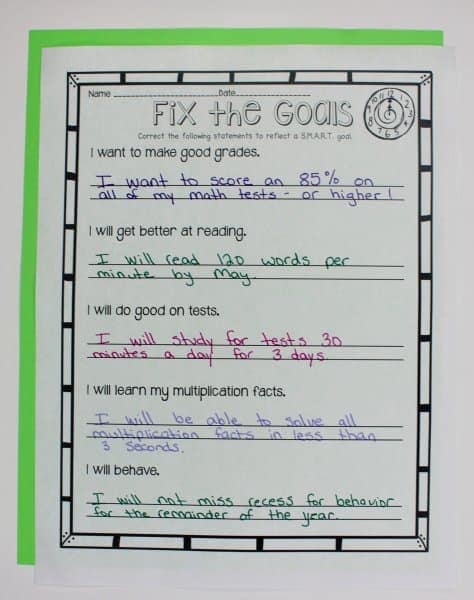 Name Date
Fix the Goals
Correct the following statements to reflect a S.M.A.R.T. goal.
I want to make good grades.
I want to score an 85% on
all of my math tests - or higher!
I will get better at reading.
I will read 120 words per
minute by May.
I will do good on tests.
I will study for tests 30
minutes a day for 3 days.
I will learn my multiplication facts.
I will be able to solve all
multiplication facts in less than
3 seconds.
I will behave.
I will not miss recess for behavior
for the remainder of the year.